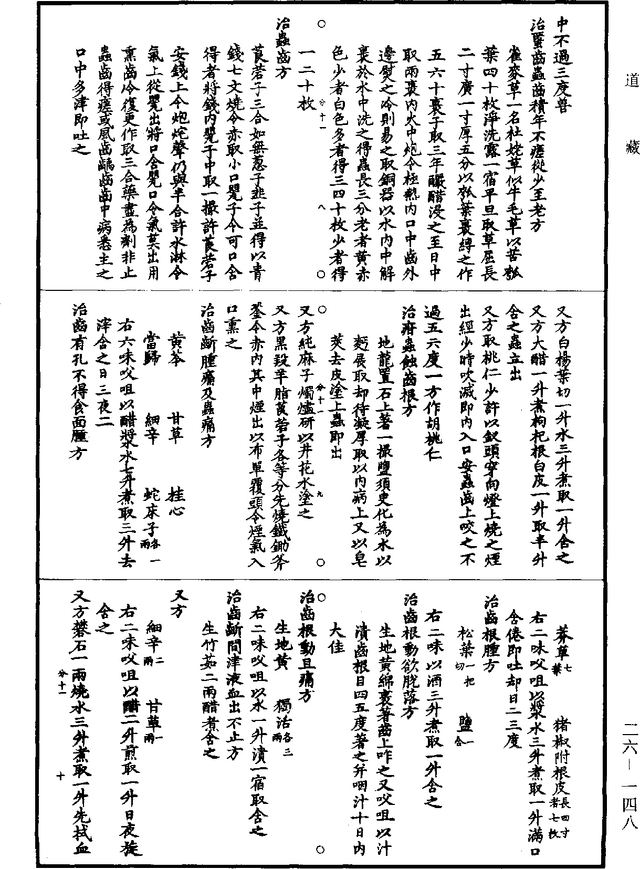 道藏
中不過三度善
治䘌齒蟲齒積年不瘥從少至老方
雀麥草一名杜姥草以牛毛草以苦瓠
葉四十枚淨洗露一宿平旦取草屈長
二寸廣一寸厚五分以瓠葉裹縛之作
五六十裹子取三年釅醋浸之至日中
取兩裹內火中炮令極熱內口中齒外
邊熨之冷則易之取銅器以水內中解
裹於水中洗之得蟲長三分老者黃赤
色少者白色多者得三四十枚少者得
一二十枚
分十一
八
治蟲齒方
莨菪子三合如無葱子韭子並得以青
錢七文燒令赤取小口甖子令可口含
得者將錢內甖子中取一撮許莨菪子
安錢上令炮烢聲仍與半合許水淋令
氣上從甖出將口含甖口令氣莫出用
熏齒冷復更作取三合藥盡為劑非止
蟲齒得瘥或風齒齲齒齒中病悉主之
口中多津即吐之
又方白楊葉切一升水三升煮取一升含之
又方大醋一升煮枸杞根白皮一升取半升
含之蟲立出
又方取桃仁少許以釵頭穿向燈上燒之煙
出經少時吹滅即內入口安蟲齒上咬之不
過五六度一方作胡桃仁
治疳蟲蝕齒根方
地龍置石上著一撮鹽須臾化為水以
麪展取却待凝厚取以內病上又以皂
莢去皮塗上蟲即出
又方純麻子燭燼研以井花水塗之
分十一
九
又方黑羖羊脂莨菪子各等分先燒鐵鋤斧
銎令赤內其中煙出以布單覆頭令煙氣入
口熏之
治齒齗腫痛及蟲痛方
黃芩 甘草 桂心
當歸 細辛 蛇床子各一兩
右六味㕮咀以醋漿水七升煮取三升去
滓含之日三夜二
治齒有孔不得食面腫方
莽草七葉 豬椒附根皮長四寸者七枚
右二味㕮咀以漿水三升煮取一升滿口
含倦即吐却日二三度
治齒根腫方
松葉一把切 鹽一合
右二味以酒三升煮取一升含之
治齒根動欲脫落方
生地黃綿裹著齒上咋之又㕮咀以汁
漬齒根日四五度著之并咽汁十日內
大佳
治齒根動且痛方
生地黃 獨活各三兩
右二味㕮咀以水一升漬一宿取含之
治齒齗間津液血出不止方
生竹茹二兩醋煮含之
又方
細辛二兩 甘草一兩
右二味㕮咀以醋二升煎取一升日夜旋
含之
又方礬石一兩燒水三升煮取一升先拭血
分十一
十
二六—一四八